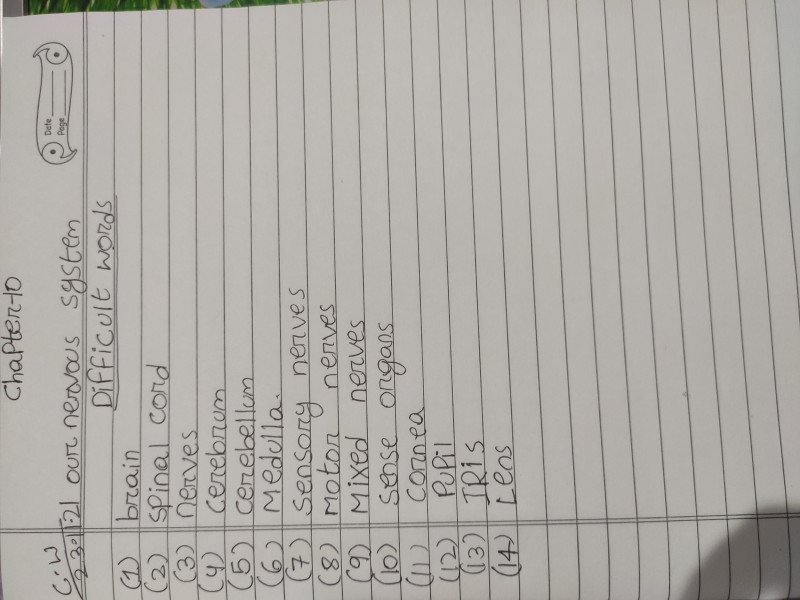 Chapter-10
Date
Page
C.W
23.11.21 our nervous system
Difficult words
(1) brain
(2) spinal cord
(3) nerves
(4) cerebrum
(5) cerebellum
(6) Medulla.
(7) sensory nerves
(8) Motor nerves
(9) Mixed nerves
(10) sense organs
(11) cornea
(12) Pupil
(13) IRis
(14) Lens